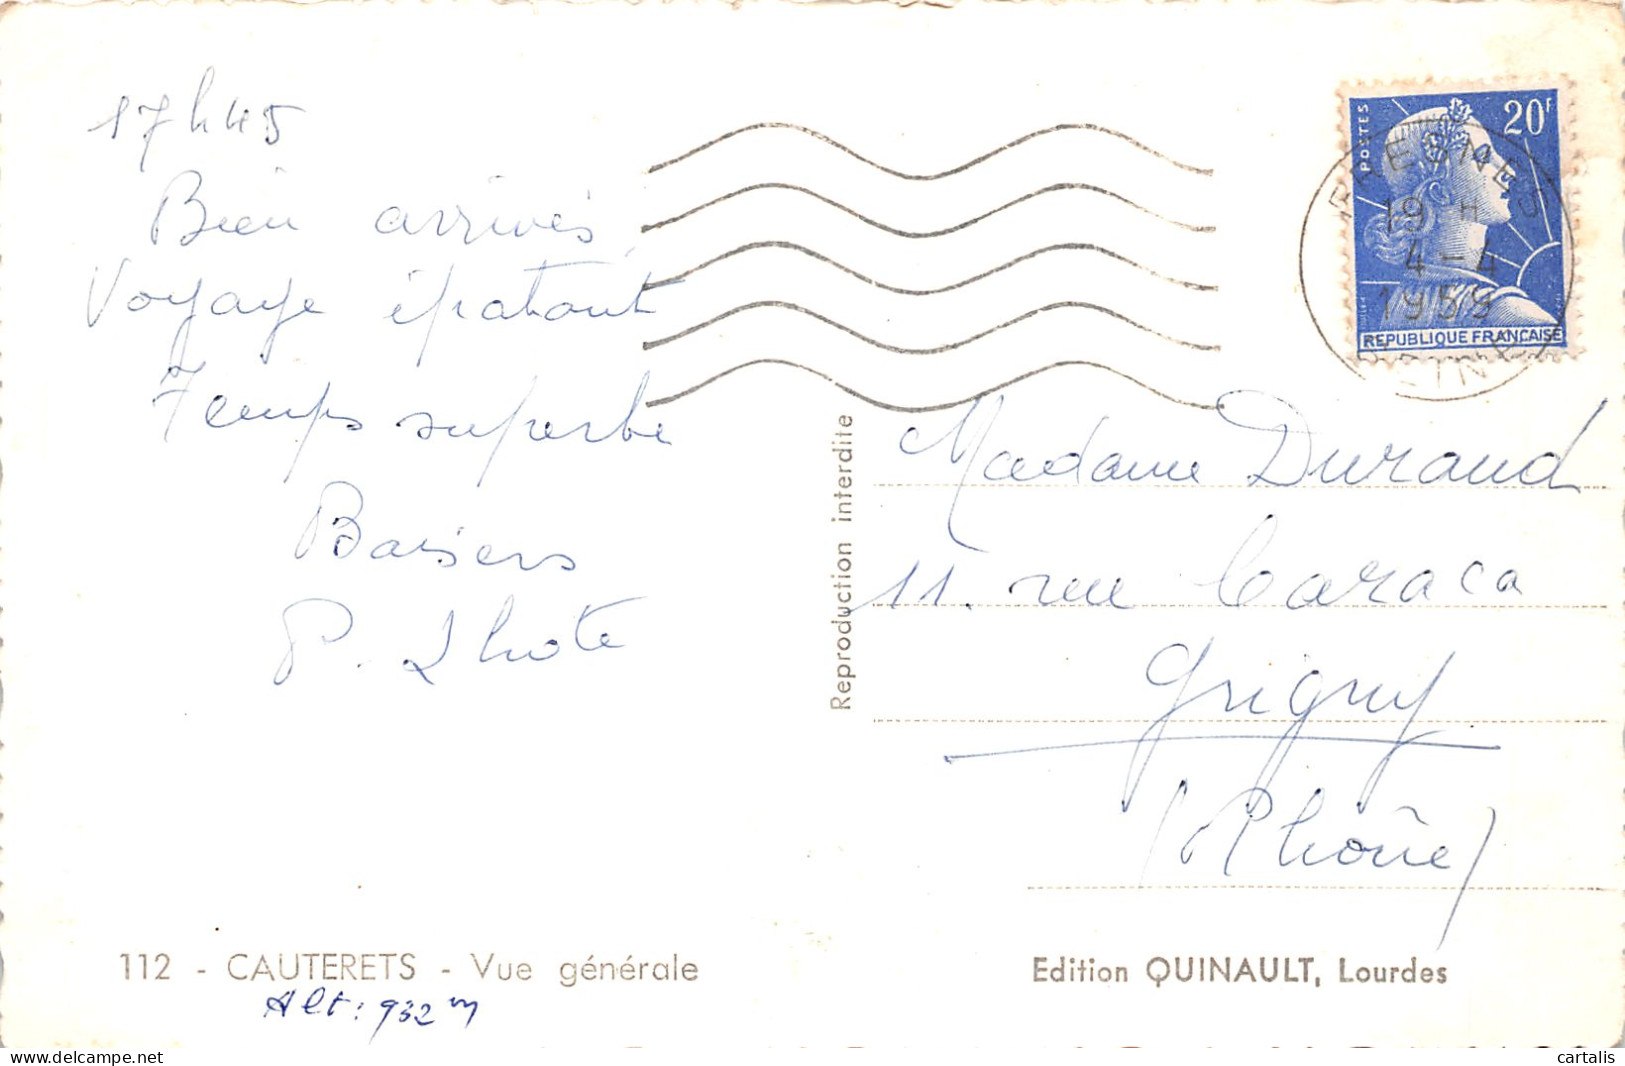 17h45
Bien arrivés,
Voyage épatant
Temps superbe
Baisers
P. Lhote
112 - CAUTERETS - Vue générale
Alt: 932 m
Reproduction interdite
POSTES
20F
REPUBLIQUE FRANÇAISE
FRESNES
19 H
4 - 4
1959
SEINE
Madame Durand
11. rue Caraca
Grigny
(Rhône)
Edition QUINAULT, Lourdes
cartalis